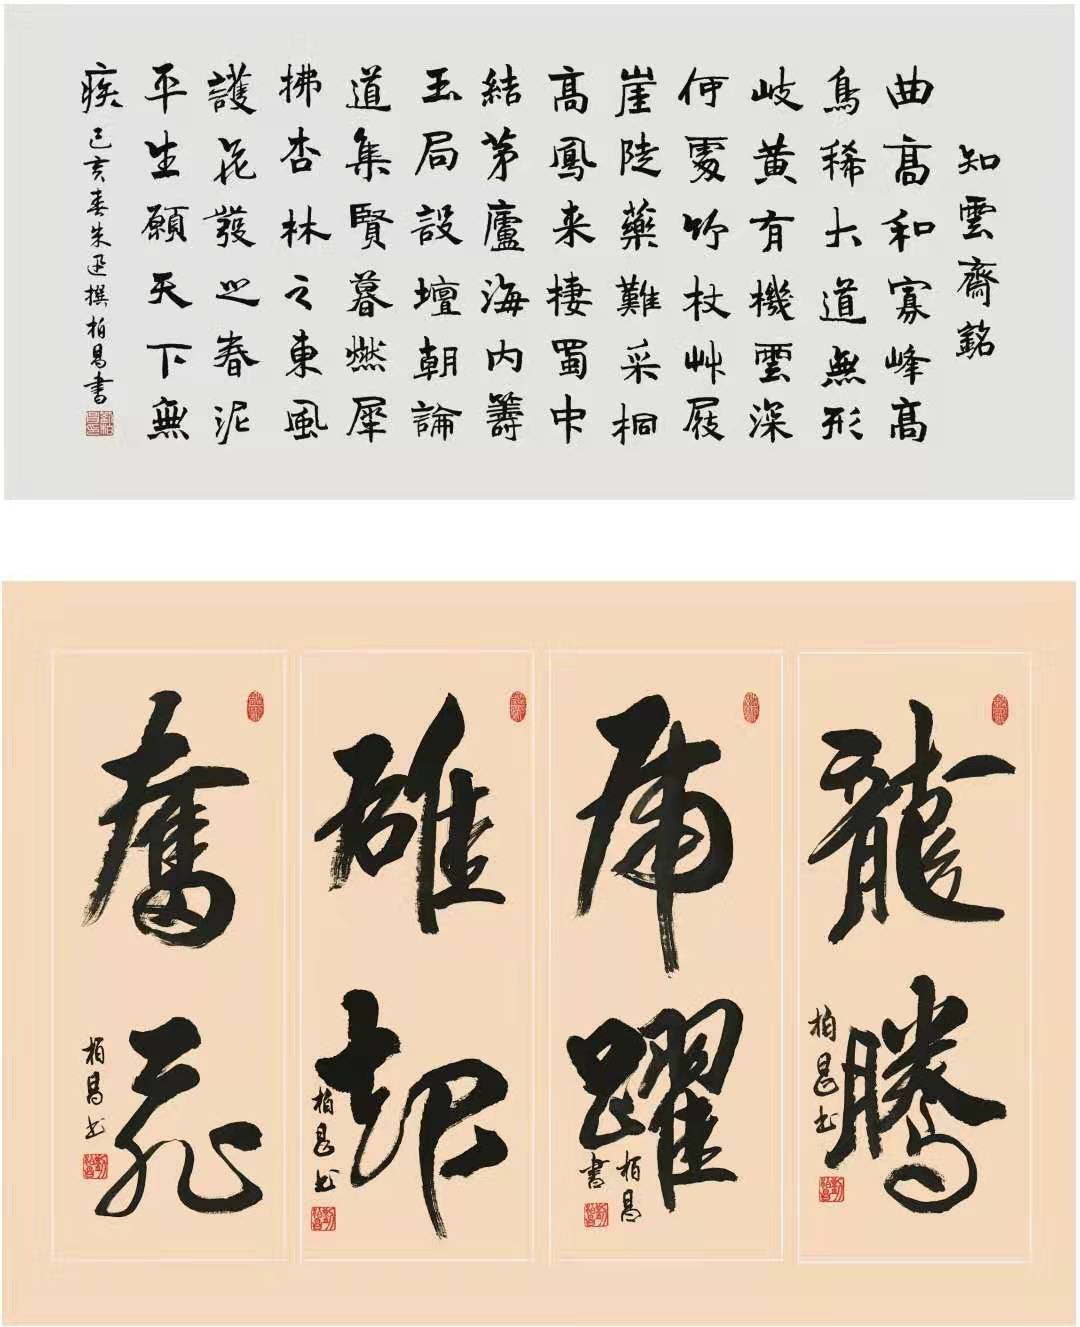 知雲齋銘
曲高和寡峰高
鳥稀大道無形
岐黃有機雲深
何處竹杖艸屐
崖陡藥難采桐
高鳳来棲蜀中
結茅廬海内籌
玉局設壇朝論
道集賢暮燃犀
拂杏林之東風
護花發之春泥
平生願天下無
疾
己亥春朱迅撰柏昌書
龍騰
柏昌书
虎躍
柏昌
書
雄起
柏昌书
奮飛
柏昌书